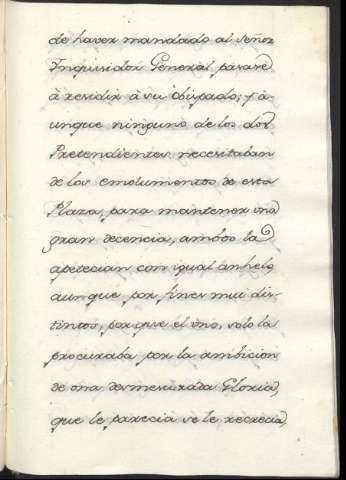 de haver mandado al señor
Inquisidor General pasase
à residir à su Obispado; y á
unque ninguno de los dos
Pretendientes necesitaban
de los emolumentos de esta
Plaza, para mantener una
gran decencia, ambos la
apetecian con igual anhelo
aunque por fines mui dis-
tintos, porque el uno, solo la
procuraba por la ambicion
de una desmesurada Gloria,
que le parecia se le recrecia,